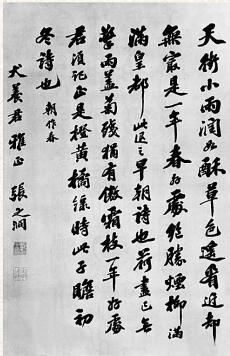 天街小雨潤如酥草色遙看近却
無最是一年春好處絕勝煙柳滿
滿皇都此退之早朝詩也荷盡已無
擎雨蓋菊殘猶有傲霜枝一年好處
君須記正是橙黃橘綠時此子瞻初
冬詩也 朝作春
犬養君雅正 張之洞